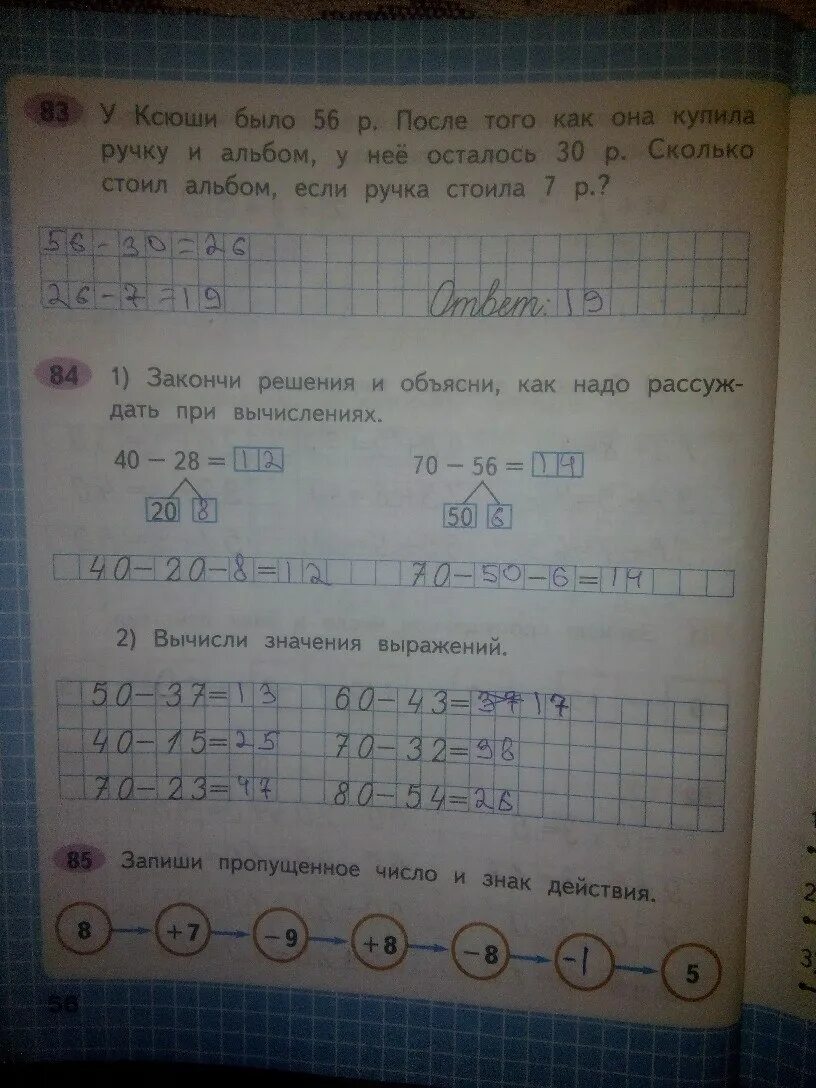 83 У Ксюши было 56 р. После того как она купила
ручку и альбом, у неё осталось 30 р. Сколько
стоил альбом, если ручка стоила 7 р.?
56-30=26
26-7=19 Ответ: 19
84 1) Закончи решения и объясни, как надо рассуж-
дать при вычислениях.
40 − 28 = 12 70 − 56 = 14
20 8 50 6
40-20-8=12 70-50-6=14
2) Вычисли значения выражений.
50-37=13 60-43=37 17
40-15=25 70-32=38
70-23=47 80-54=26
85 Запиши пропущенное число и знак действия.
8 +7 −9 +8 −8 -1 5
56
2
3